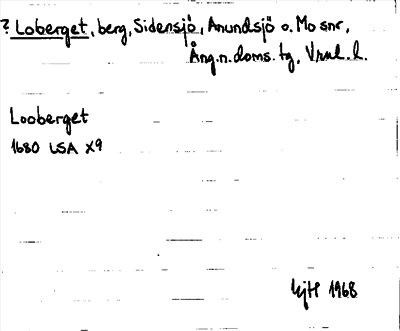 ? Loberget, berg, Sidensjö, Anundsjö o. Mo snr,
Ång.n.doms.tg, Vrnl. l.
Looberget
1680 LSA X9
1968